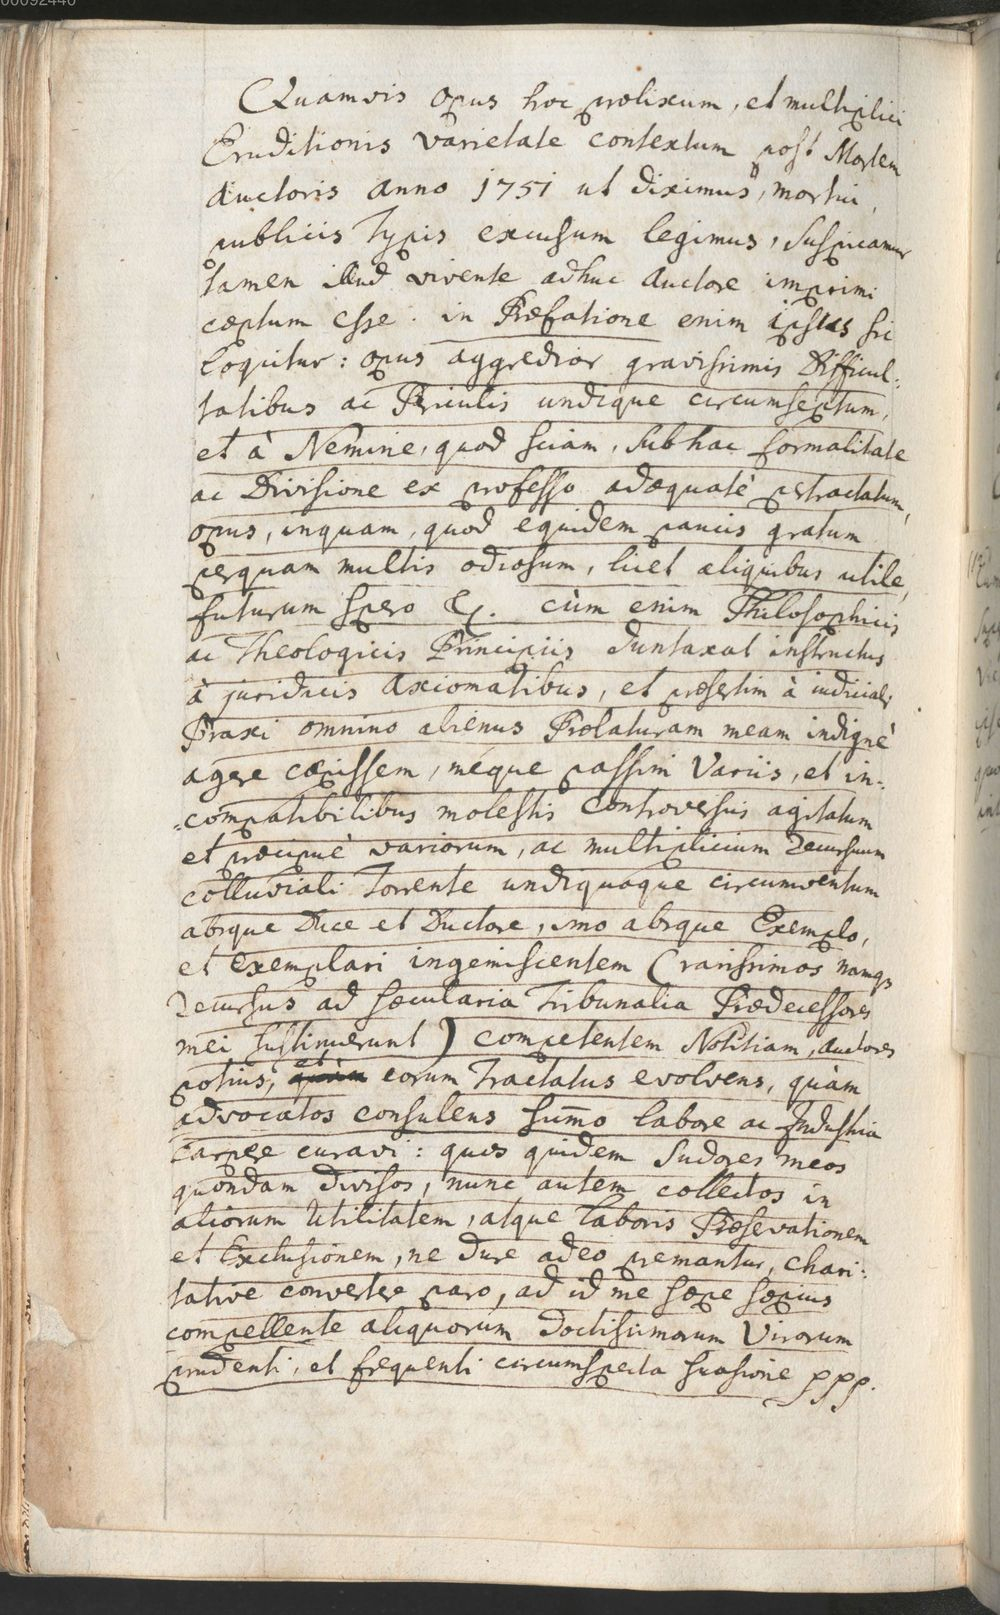 00092440
Quamvis opus hoc prolixum, et multiplici
Eruditionis varietate contextum post Mortem
Auctoris anno 1751 ut diximus, mortui,
publicis Typis excusum legimus, suspicamur
tamen illud vivente adhuc Auctore imprimi
cœptum esse. in Præfatione enim ipsius sic
loquitur: opus aggredior gravissimis Difficul-
tatibus ac Periculis undique circumseptum,
et à Nemine, quod sciam, sub hac formalitate
ac Divisione ex professo adæquatè pertractatum,
opus, inquam, quod equidem paucis gratum
perquam multis odiosum, licet aliquibus utile,
futurum spero &c. cùm enim Philosophicis
ac Theologicis Principiis duntaxat instructus
à juridicis Axiomatibus, et præsertim à judiciali
Praxi omnino alienus Prælaturam meam indignè
agere cœpissem, meque passim Variis, et in-
-compatibilibus molestis Controversiis agitatum
et præcipuè variorum, ac multiplicium Recursuum
colluviali Torrente undiquaque circumventum
absque Duce et Ductore, imo absque Exemplo,
et exemplari ingemiscentem (rarissimos namqs
Recursus ad sæcularia Tribunalia Prædecessores
mei sustinuerunt) competentem Notitiam, Auctores
potius, et eorum Tractatus evolvens, quàm
advocatos consulens sum̄o labore ac Industria
carpere curavi: quos quidem Sudores meos
quondam divisos, nunc autem collectos in
aliorum Utilitatem, atque Laboris Præservationem
et Exclusionem, ne dure adeo premantur, chari-
tative convertere paro, ad id me sæpe sæpius
compellente aliquorum Doctissimorum Virorum
prudenti, et frequenti circumspecta suasione ppp.